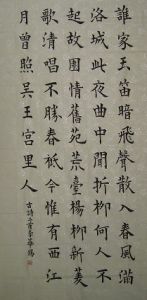 誰家玉笛暗飛聲散入春風滿
洛城此夜曲中聞折柳何人不
起故園情舊苑荒臺楊柳新菱
歌清唱不勝春祇今惟有西江
月曾照吳王宮里人
古詩二首李